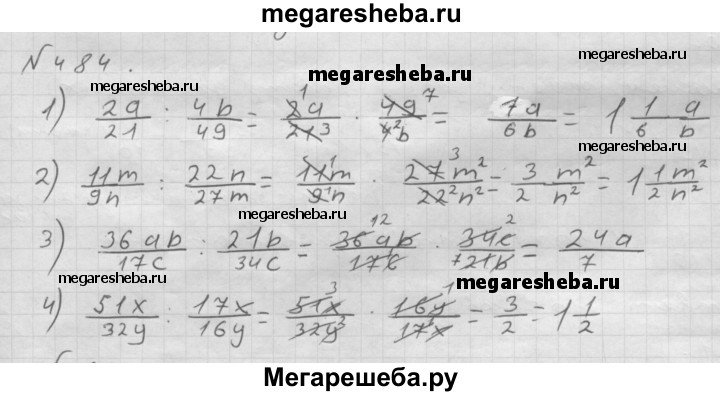 megaresheba.ru
№484.
megaresheba.ru
megaresheba.ru
megaresheba.ru
1) 2a/21 : 4b/49 = 2a/21 · 49/4b = 7a/6b = 1 1/6 a/b
megaresheba.ru
2) 11m/9n : 22n/27m = 11m/9n · 27m²/22n² = 3/2 m²/n² = 1 1/2 m²/n²
megaresheba.ru
3) 36ab/17c : 21b/34c = 36ab/17c · 34c/21b = 24a/7
megaresheba.ru
megaresheba.ru
4) 51x/32y : 17x/16y = 51x/32y · 16y/17x = 3/2 = 1 1/2
Мегарешеба.ру